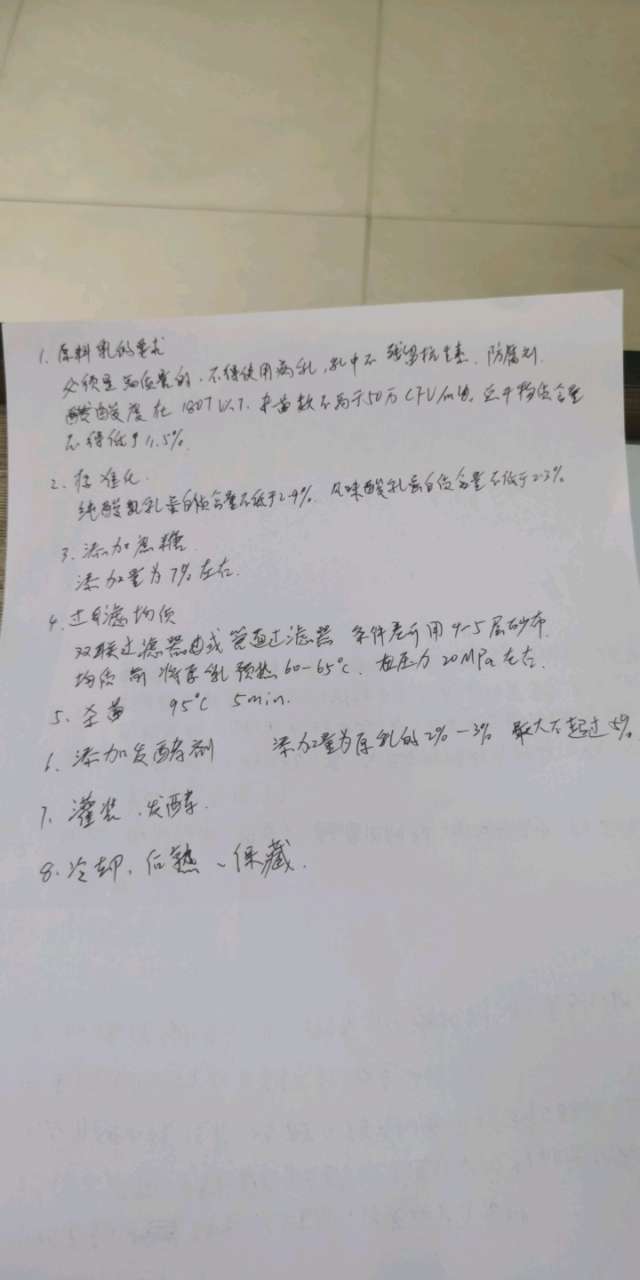 1. 原料乳的要求
必须是高质量的、不得使用病乳,乳中不残留抗生素、防腐剂.
酸度在18°T以下.杂菌数不高于50万CFU/mL, 总干物质含量
不得低于11.5%.
2. 标准化
纯酸乳蛋白质含量不低于2.9%. 风味酸乳蛋白质含量不低于2.3%
3. 添加蔗糖.
添加量为7%左右.
4. 过滤均质
双联过滤器或管道过滤器 条件差可用4-5层砂布.
均质前将原乳预热60-65℃. 在压力20MPa左右.
5. 杀菌 95℃ 5min.
6. 添加发酵剂 添加量为原乳的2%-3% 最大不超过5%.
7. 灌装、发酵.
8. 冷却、后熟、保藏.